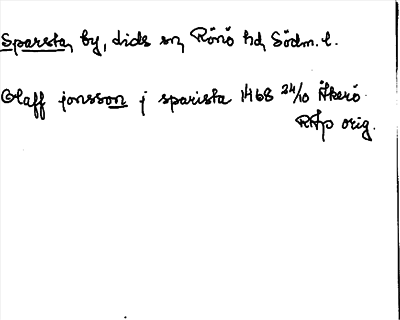 Sparsta, by, dids sn, Rönö hd, Södm. l.
Olaff jonsson j sparista 1468 24/10 Åkerö
RAp orig.